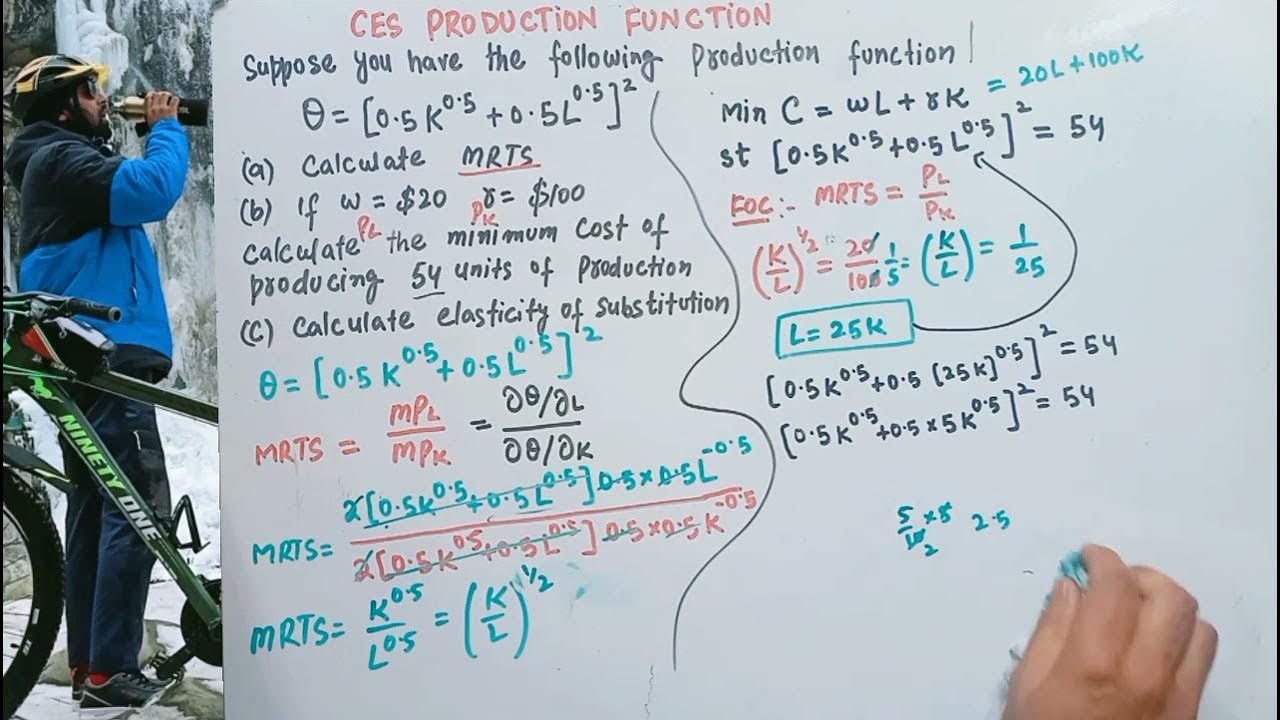 CES PRODUCTION FUNCTION
Suppose you have the following Production function
θ = [0.5K^0.5 + 0.5L^0.5]^2
(a) Calculate MRTS
(b) If w = $20 r = $100
PL PK
calculate the minimum cost of
producing 54 units of production
(c) Calculate elasticity of substitution
θ = [0.5K^0.5 + 0.5L^0.5]^2
MRTS = MPL/MPK = ∂θ/∂L / ∂θ/∂K
MRTS = 2[0.5K^0.5 + 0.5L^0.5] 0.5 × 0.5L^-0.5 / 2[0.5K^0.5 + 0.5L^0.5] 0.5 × 0.5K^-0.5
MRTS = K^0.5/L^0.5 = (K/L)^1/2
Min C = wL + rK = 20L + 100K
st [0.5K^0.5 + 0.5L^0.5]^2 = 54
FOC:- MRTS = PL/PK
(K/L)^1/2 = 20/100 1/5 = (K/L) = 1/25
L = 25K
[0.5K^0.5 + 0.5 [25K]^0.5]^2 = 54
[0.5K^0.5 + 0.5 × 5K^0.5]^2 = 54
5/10 × 5 2.5
2
NINETY ONE